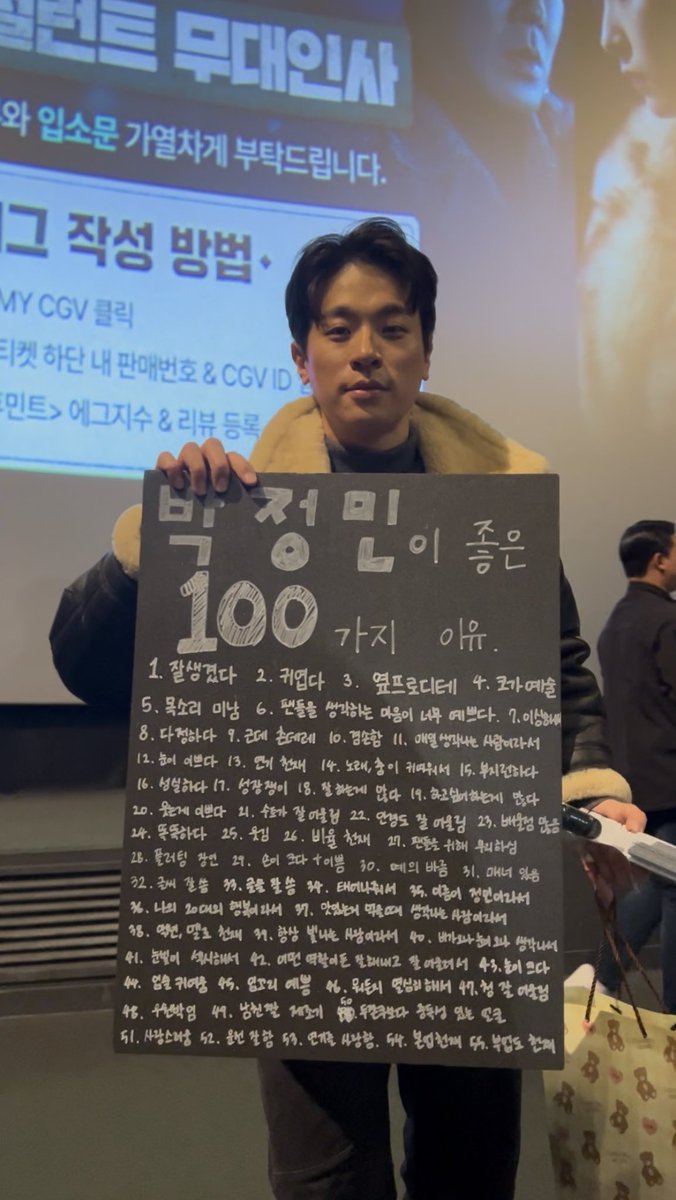 무대인사
입소문 가열차게 부탁드립니다.
작성 방법
MY CGV 클릭
티켓 하단 내 판매번호 & CGV ID
에그지수 & 리뷰 등록
박정민이 좋은
100가지 이유.
1. 잘생겼다 2. 귀엽다 3. 옆프로디테 4. 코가 예술
5. 목소리 미남 6. 팬들을 생각하는 마음이 너무 예쁘다. 7.
8. 다정하다 9. 근데 츤데레 10. 겸손함 11. 매일 생각나는 사람이라서
12. 눈이 이쁘다 13. 연기 천재 14. 노래, 춤이 귀여워서 15. 부지런하다
16. 성실하다 17. 성장캐이 18. 잘하는게 많다 19. 하고싶어하는게 많다
20. 웃는게 이쁘다 21. 수트가 잘 어울림 22. 안경도 잘 어울림 23. 배울점 많음
24. 똑똑하다 25. 웃김 26. 비율 천재 27. 팬들을 위해 무리하심
28. 플러팅 장인 29. 손이 크다 + 이쁨 30. 예의 바름 31. 매너 있음
32. 글씨 잘 씀 33. 글을 잘 씀 34. 태어나줘서 35. 이름이 정민이라서
36. 나의 20대의 행복이라서 37. 맛있는거 먹을때 생각나는 사람이라서
38. 악역, 멜로 천재 39. 항상 빛나는 사람이라서 40.
41. 눈빛이 섹시해서 42. 어떤 역할이든 잘해내고 잘 어울려서 43. 눈이 크다
44. 입술 귀여움 45. 입꼬리 예쁨 46. 뭐든지 열심히해서 47. 청 잘 어울림
48. 49. 남친짤 제조기 50 중독성 있는 얼굴
51. 사랑스러움 52. 운전 잘함 53. 연기를 사랑함. 54. 본업천재 55. 부업도 천재